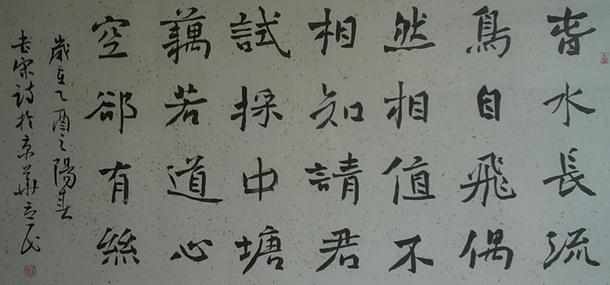 春水長流
鳥自飛偶
然相值不
相知請君
試採中塘
藕若道心
空郤有絲
歲在乙酉之陽春
書宋詩於京華立民